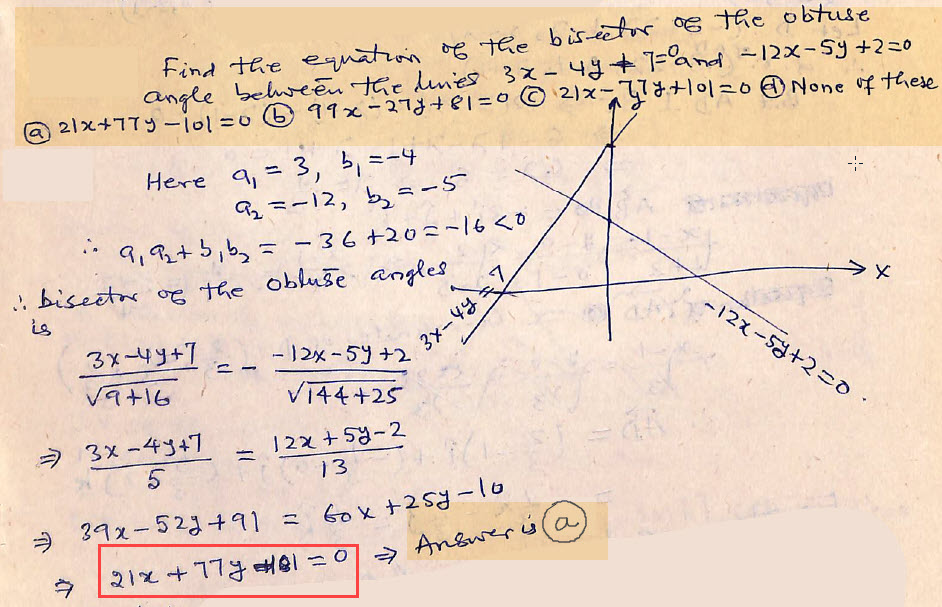 Find the equation of the bisector of the obtuse
angle between the lines 3x - 4y + 7 = 0 and -12x - 5y + 2 = 0
ⓐ 21x + 77y - 101 = 0 ⓑ 99x - 27y + 81 = 0 ⓒ 21x - 77y + 101 = 0 ⓓ None of these
Here a₁ = 3, b₁ = -4
a₂ = -12, b₂ = -5
∴ a₁a₂ + b₁b₂ = -36 + 20 = -16 < 0
∴ bisector of the obtuse angles
is
(3x - 4y + 7)/√(9+16) = - (-12x - 5y + 2)/√(144+25)
⇒ (3x - 4y + 7)/5 = (12x + 5y - 2)/13
⇒ 39x - 52y + 91 = 60x + 25y - 10
⇒ 21x + 77y - 101 = 0 ⇒ Answer is ⓐ
y
x
3x - 4y = 7
-12x - 5y + 2 = 0